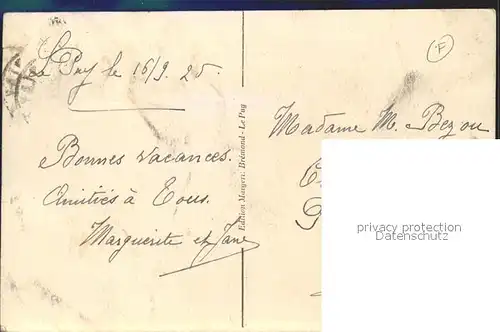 Le Puy le 16/9. 25.
Bonnes vacances.
Amitiés à Tous.
Marguerite et Jane
Edition Margerit Brémond - Le Puy
F
Madame M. Bezou
privacy protection
Datenschutz